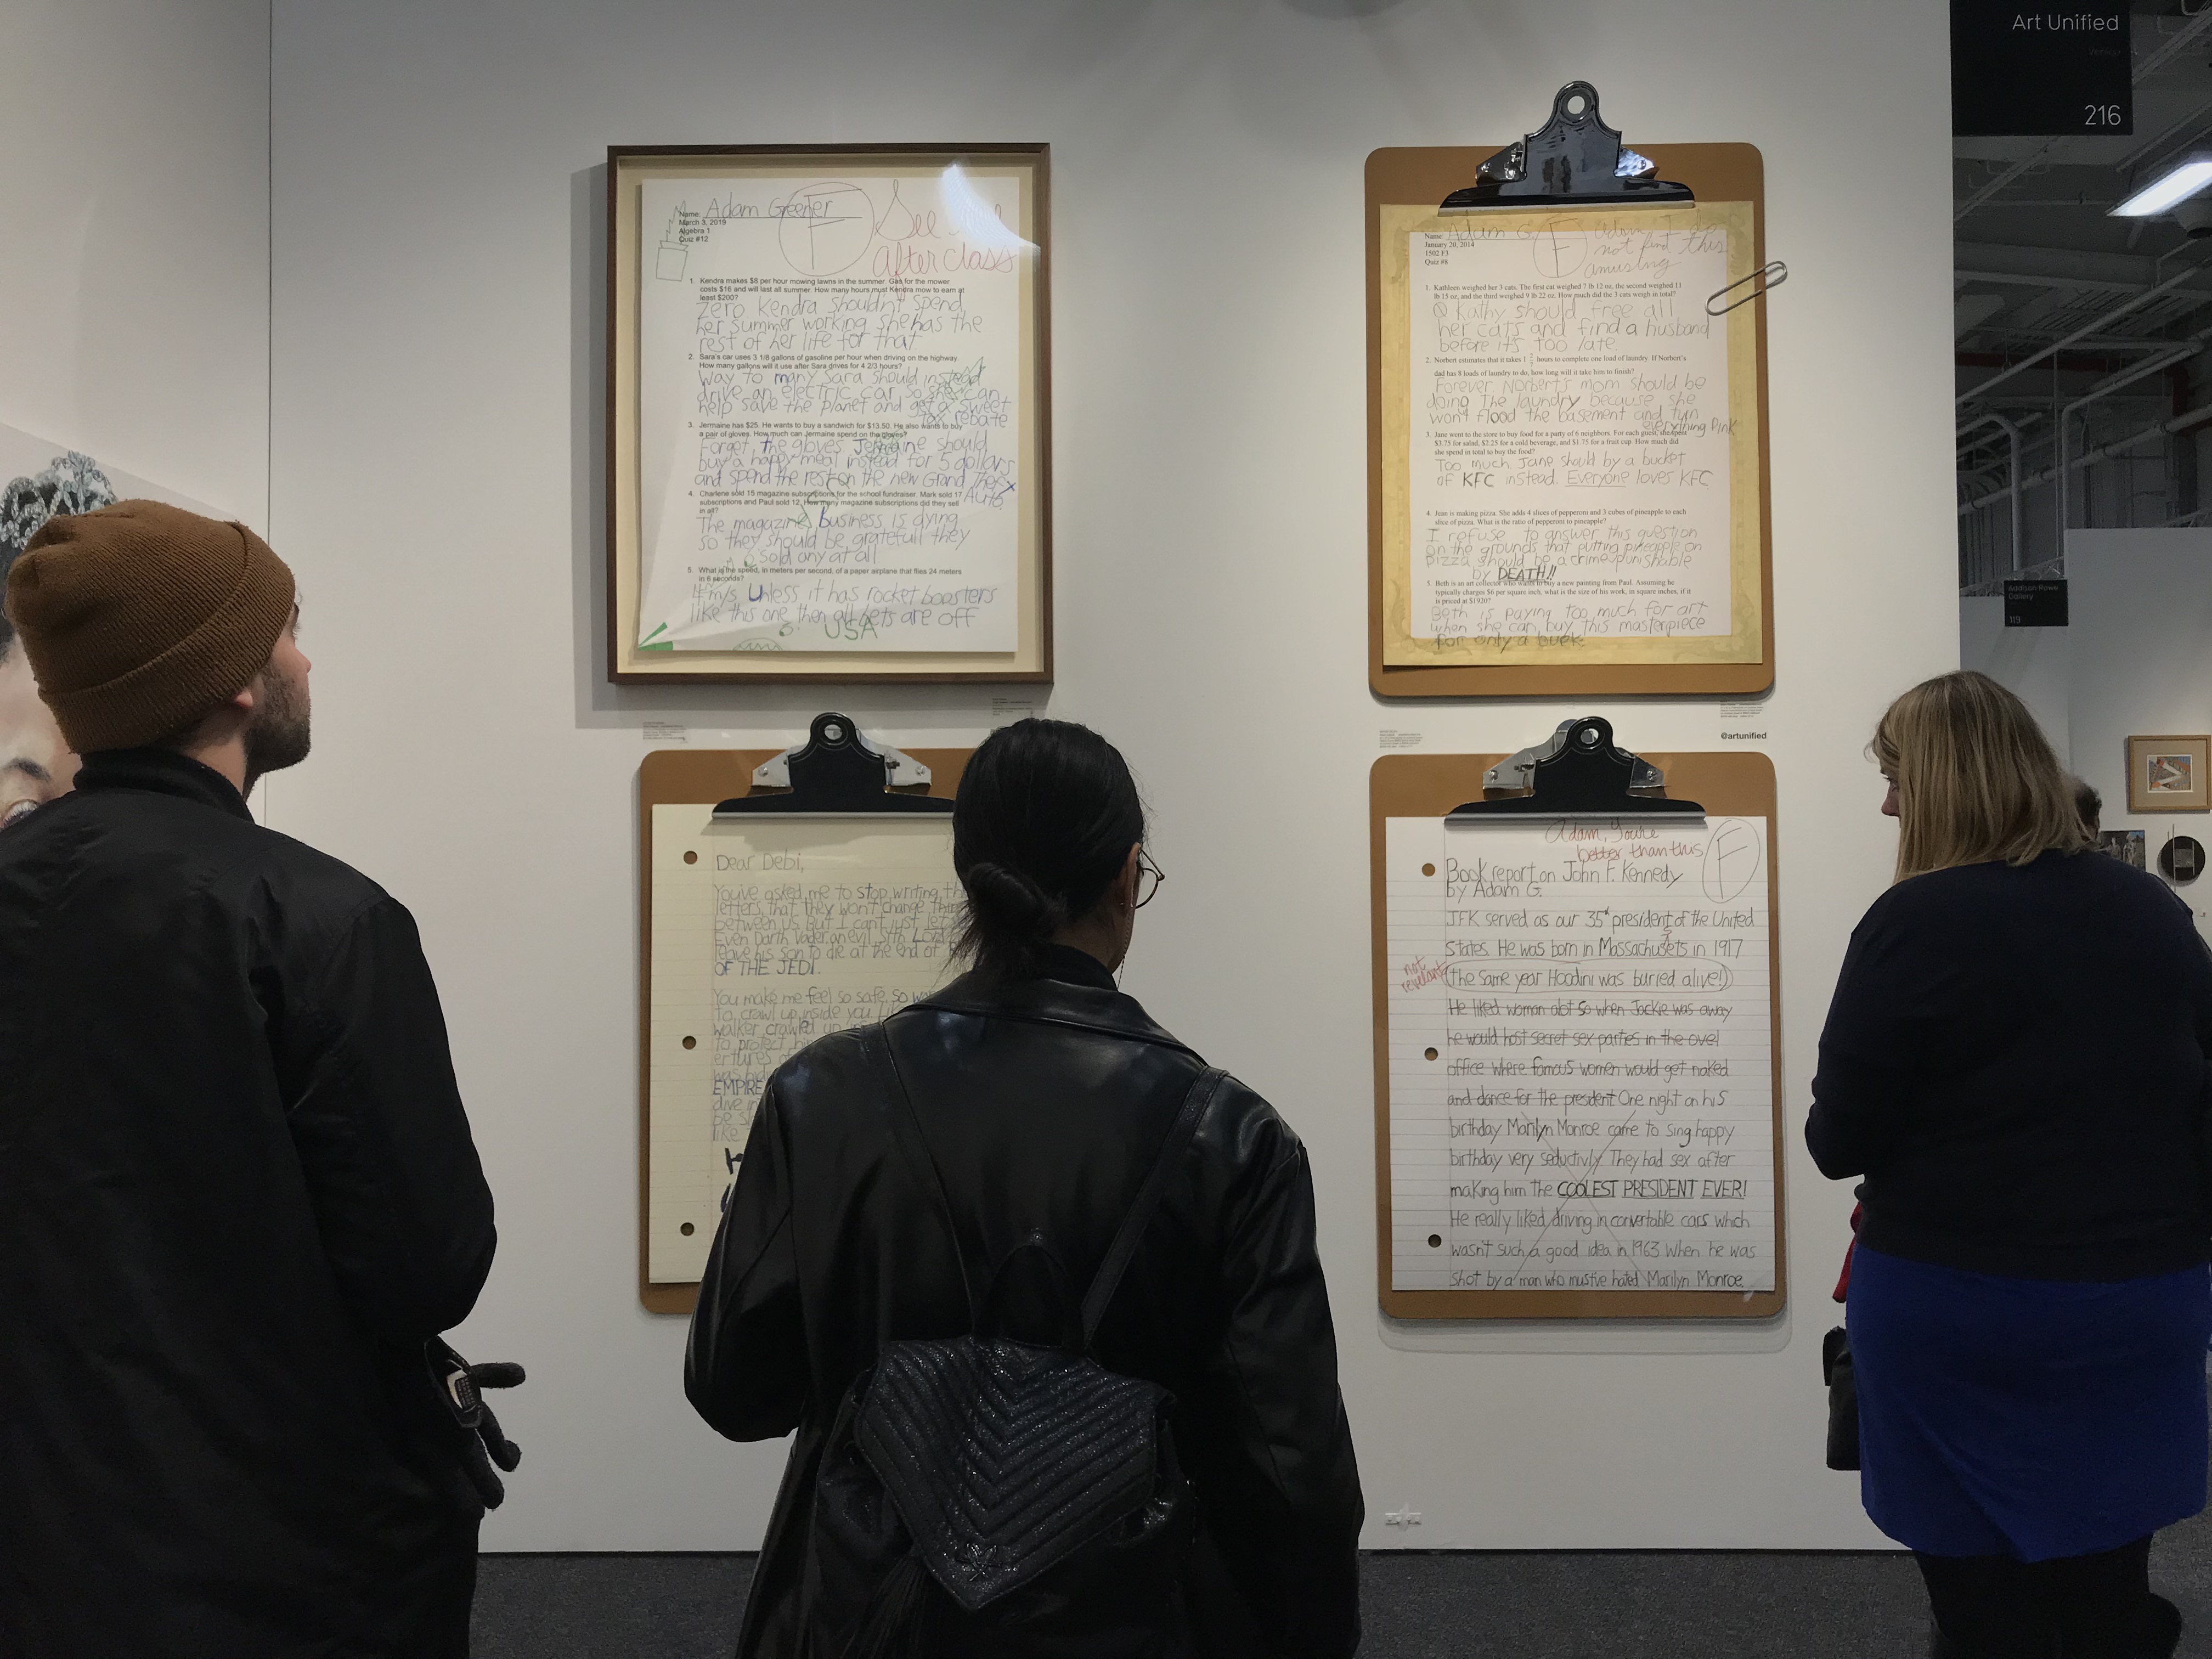 Art Unified
Venice
216
Name: Adam Greener
March 3, 2019
Algebra 1
Quiz #12
F
See
after class
1. Kendra makes $8 per hour mowing lawns in the summer. Gas for the mower
costs $16 and will last all summer. How many hours must Kendra mow to earn at
least $200?
Zero Kendra shouldn't spend
her summer working she has the
rest of her life for that
2. Sara's car uses 3 1/8 gallons of gasoline per hour when driving on the highway.
How many gallons will it use after Sara drives for 4 2/3 hours?
Way to many Sara should instead
drive an electric car so she can
help save the planet and get a sweet
tax rebate
3. Jermaine has $25. He wants to buy a sandwich for $13.50. He also wants to buy
a pair of gloves. How much can Jermaine spend on the gloves?
Forget the gloves Jermaine should
buy a happy meal instead for 5 dollars
and spend the rest on the new Grand Theft
Auto
4. Charlene sold 15 magazine subscriptions for the school fundraiser. Mark sold 17
subscriptions and Paul sold 12. How many magazine subscriptions did they sell
in all?
The magazine business is dying
so they should be gratefull they
sold any at all
5. What is the speed, in meters per second, of a paper airplane that flies 24 meters
in 6 seconds?
4 m/s Unless it has rocket boosters
like this one then all bets are off
USA
Name: Adam G.
January 20, 2014
1502 F3
Quiz #8
F
Adam I do
not find this
amusing
1. Kathleen weighed her 3 cats. The first cat weighed 7 lb 12 oz, the second weighed 11
lb 15 oz, and the third weighed 9 lb 22 oz. How much did the 3 cats weigh in total?
Kathy should free all
her cats and find a husband
before it's too late.
2. Norbert estimates that it takes 1 hours to complete one load of laundry. If Norbert's
dad has 8 loads of laundry to do, how long will it take him to finish?
Forever. Norbert's mom should be
doing the laundry because she
won't flood the basement and turn
everything Pink
3. Jane went to the store to buy food for a party of 6 neighbors. For each guest, she spent
$3.75 for salad, $2.25 for a cold beverage, and $1.75 for a fruit cup. How much did
she spend in total to buy the food?
Too much Jane should by a bucket
of KFC instead. Everyone loves KFC
4. Jean is making pizza. She adds 4 slices of pepperoni and 3 cubes of pineapple to each
slice of pizza. What is the ratio of pepperoni to pineapple?
I refuse to answer this question
on the grounds that putting pineapple on
pizza should be a crime punishable
by DEATH!!
5. Beth is an art collector who wants to buy a new painting from Paul. Assuming he
typically charges $6 per square inch, what is the size of his work, in square inches, if it
is priced at $1920?
Beth is paying too much for art
when she can buy this masterpiece
for only a buck
@artunified
Addison Rowe
Gallery
119
Dear Debi,
You've asked me to stop writing
letters, that they won't change
between us. But I can't just let
Even Darth Vader, an evil Sith Lord
leave his son to die at the end of
OF THE JEDI.
You make me feel so safe. so
to crawl up inside you
walker crawled up
to protect
EMPIRE
dive in
be
like
Adam, You're
better than this
F
Book report on John F. Kennedy
by Adam G.
JFK served as our 35th president of the United
States. He was born in Massachusets in 1917
not
revelant
(the same year Hoodini was buried alive!)
He liked woman alot so when Jackie was away
he would host secret sex parties in the ovel
office where famous women would get naked
and dance for the president. One night on his
birthday Marilyn Monroe came to sing happy
birthday very seductivly. They had sex after
making him the COOLEST PRESIDENT EVER!
He really liked driving in convertable cars which
wasn't such a good idea in 1963 when he was
shot by a man who must've hated Marilyn Monroe.